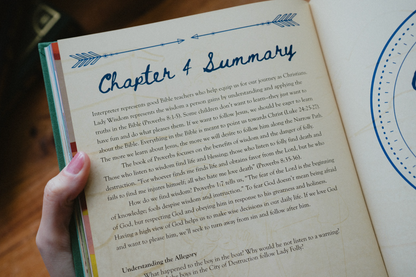 Chapter 4 Summary
Interpreter represents good Bible teachers who help equip us for our journey as Christians.
Lady Wisdom represents the wisdom a person gains by understanding and applying the
truths in the Bible (Proverbs 8:1-5). Some children don't want to learn—they just want to
have fun and do what pleases them. If we want to follow Jesus, we should be eager to learn
about the Bible. Everything in the Bible is meant to point us towards Christ (Luke 24:25-27).
The more we learn about Jesus, the more we will desire to follow him along the Narrow Path.
The book of Proverbs focuses on the benefits of wisdom and the danger of folly.
Those who listen to wisdom find life and blessing; those who listen to folly find death and
destruction. "For whoever finds me finds life and obtains favor from the Lord, but he who
fails to find me injures himself; all who hate me love death" (Proverbs 8:35-36).
How do we find wisdom? Proverbs 1:7 tells us- "The fear of the Lord is the beginning
of knowledge; fools despise wisdom and instruction." To fear God doesn't mean being afraid
of God, but respecting God and obeying him in response to his greatness and holiness.
Having a high view of God helps us to make wise decisions in our daily life. If we love God
and want to please him, we'll seek to turn away from sin and follow after him.
Understanding the Allegory
What happened to the boy in the boat? Why would he not listen to a warning?
the boys in the City of Destruction follow Lady Folly?